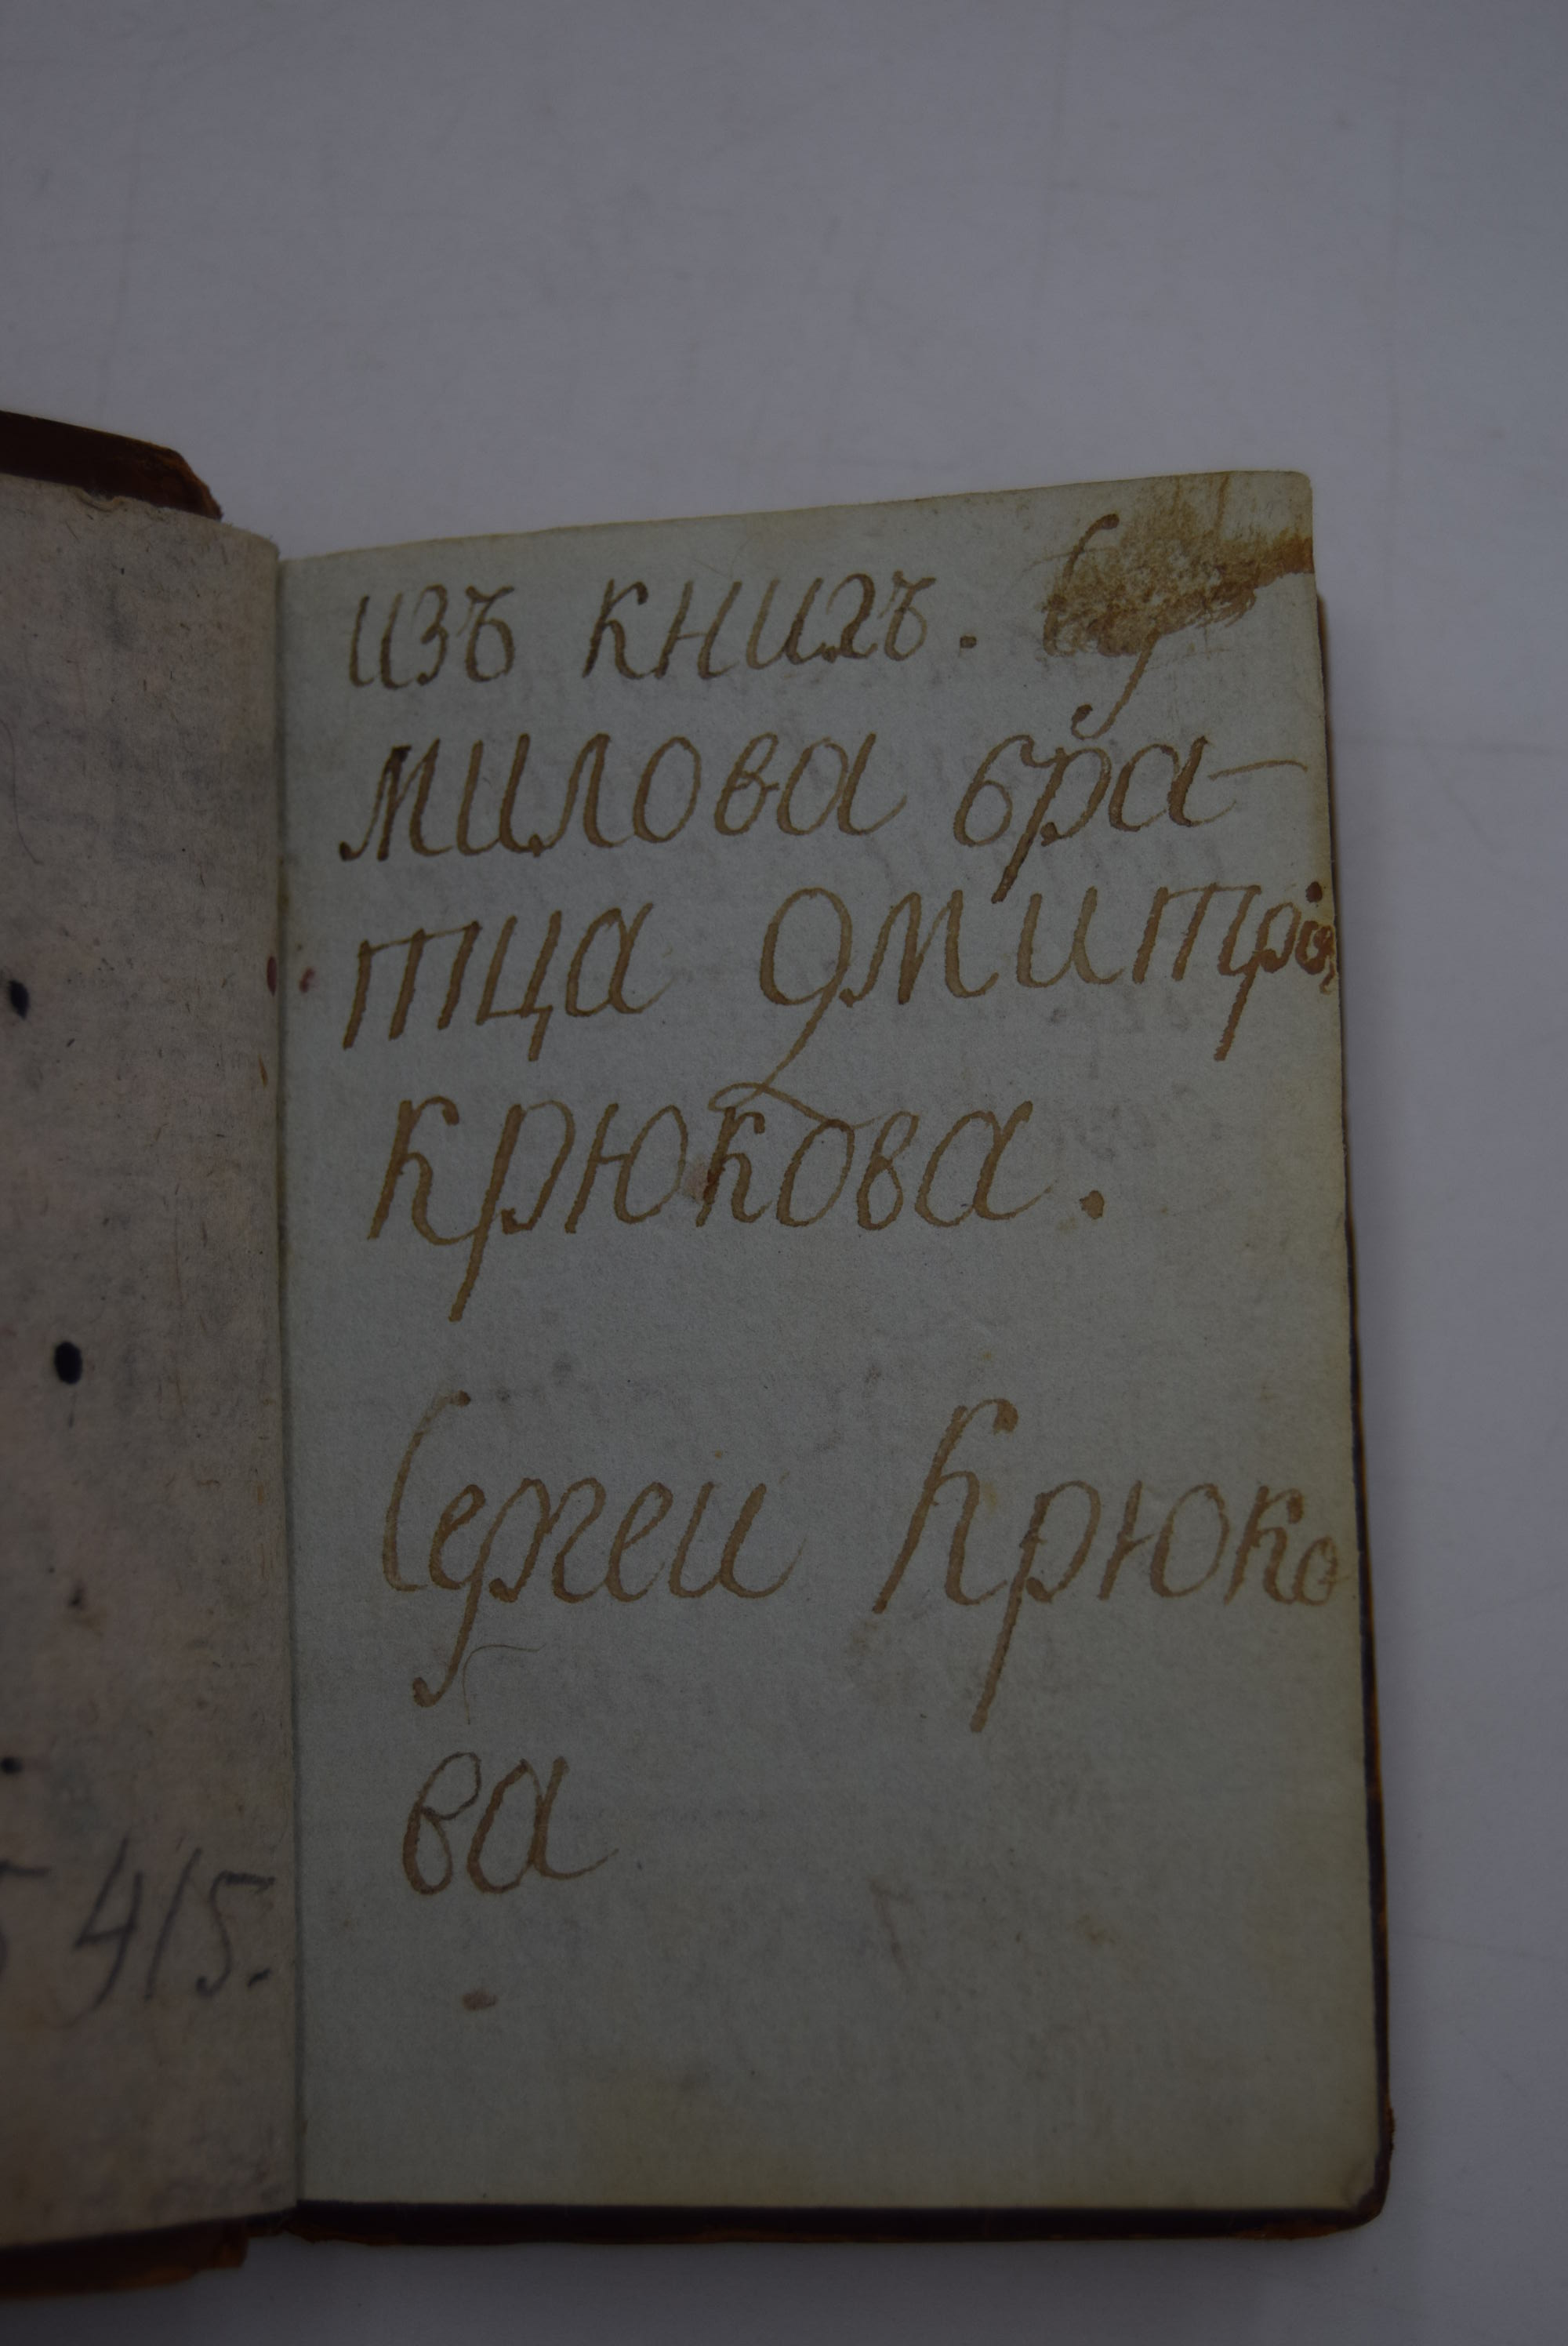 изъ книгъ.
милова бра-
тца Дмитрія
Крюкова.
Сергеи Крюко
ва
415.